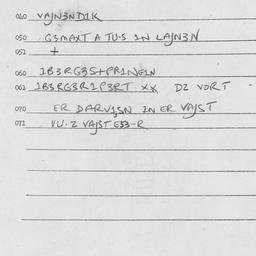 040 VAJN3ND1K
050 G3MAXT A TU.S 1N LAJN3N
051 +
060 1B3RG3S+PR1NELN
061 1B3RG3R1P3RT XX DZ VORT -
070 ER DARV1SN IN ER VAJST
071 VU.Z VAJST E53-R